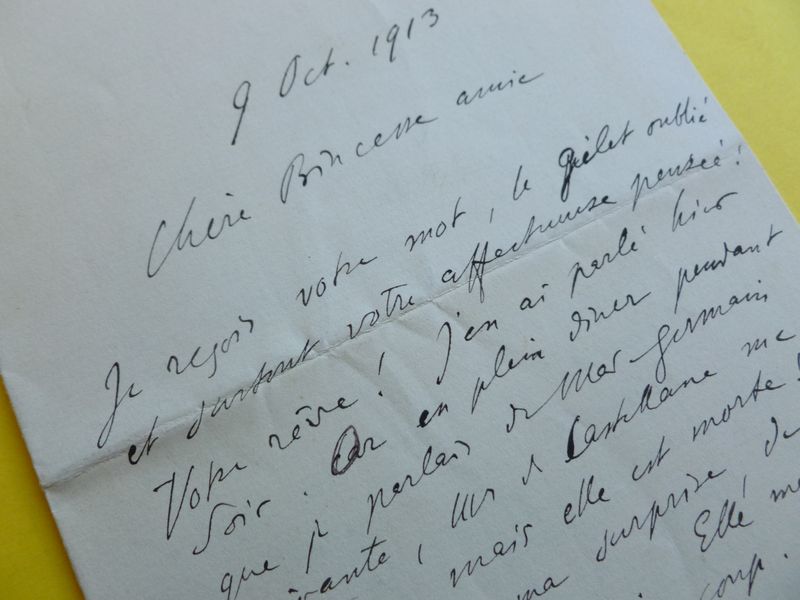 9 Oct. 1913
Chère Princesse amie
Je reçois votre mot, le gilet oublié
et surtout votre affectueuse pensée!
Votre rêve! J'en ai parlé hier
soir. Or en plein dîner pendant
que je parlais de Mme Germain
vivante, Mme de Castellane me
mais elle est morte!
ma surprise, de
Elle me
coup.